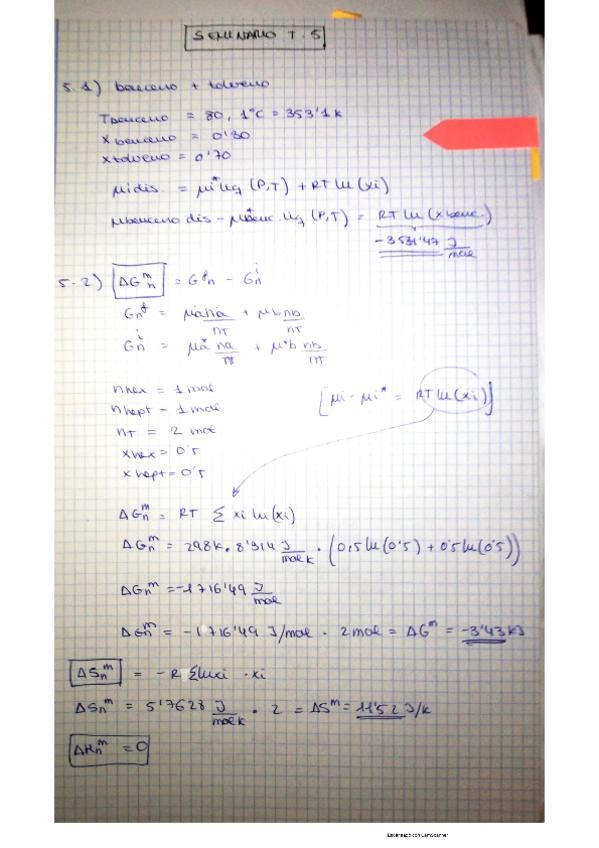 SEMINARIO T.5
5.1) benceno + tolueno
Tbenceno = 80,1°C = 353'1 K
xbenceno = 0'30
xtolueno = 0'70
μidis. = μi* liq (P,T) + RT ln (xi)
μbenceno dis - μ*benc. liq (P,T) = RT ln (xbenc.)
-3531'47 J/mol
5.2) ΔGn^m = G^f n - Gn^i
Gn^f = μa na/nT + μb nb/nT
Gn^i = μa* na/nT + μ*b nb/nT
nhex = 1 mol
[μi - μi* = RT ln(xi)]
nhept = 1 mol
nT = 2 mol
xhex = 0'5
xhept = 0'5
ΔGn^m = RT Σ xi ln(xi)
ΔGn^m = 298K · 8'314 J/mol K · (0,5 ln(0'5) + 0'5 ln(0'5))
ΔGn^m = -1716'49 J/mol
ΔGn^m = -1716'49 J/mol · 2 mol = ΔG^m = -3'43 KJ
ΔSn^m = - R Σ lnxi · xi
ΔSn^m = 5'7628 J/mol K · 2 = ΔS^m = 11'52 J/K
ΔHn^m = 0
Escaneado con CamScanner